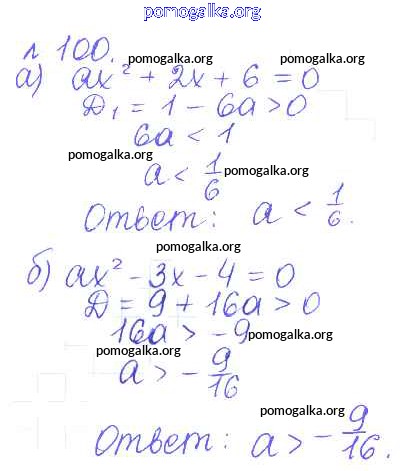 pomogalka.org
№ 100. pomogalka.org
а) ax² + 2x + 6 = 0
D₁ = 1 − 6a > 0
6a < 1
pomogalka.org
a < 1/6 pomogalka.org
Ответ: a < 1/6.
pomogalka.org
б) ax² − 3x − 4 = 0
D = 9 + 16a > 0
16a > −9 pomogalka.org
pomogalka.org
a > − 9/16
pomogalka.org
Ответ: a > − 9/16.